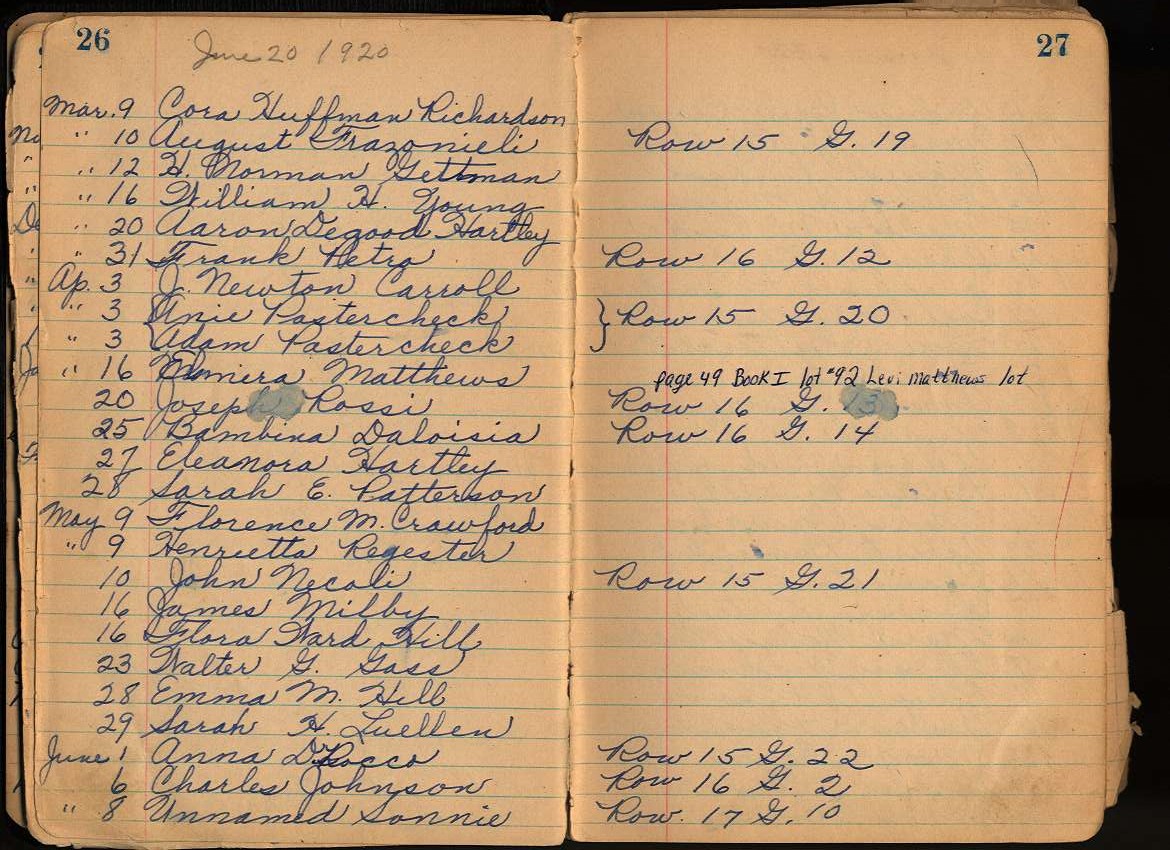 26
June 20 1920
27
Mar. 9 Cora Huffman Richardson
" 10 August Frazonieli Row 15 G. 19
" 12 H. Norman Gettman
" 16 William H. Young
" 20 Aaron Degood Hartley
" 31 Frank Petro Row 16 G. 12
Ap. 3 J. Newton Carroll
" 3 { Anie Pastercheck } Row 15 G. 20
" 3 Adam Pastercheck
" 16 Elmira Matthews page 49 Book I lot #92 Levi Matthews lot
20 Joseph Rossi Row 16 G. 13
25 Bambina Daloisia Row 16 G. 14
27 Eleanora Hartley
28 Sarah E. Patterson
May 9 Florence M. Crawford
" 9 Henrietta Regester
10 John Necoli Row 15 G. 21
16 James Milby
16 Flora Ward Hill
23 Walter G. Gass
28 Emma M. Hill
29 Sarah H. Luellen
June 1 Anna DeRocco Row 15 G. 22
6 Charles Johnson Row 16 G. 2
" 8 Unnamed Sonnie Row. 17 G. 10